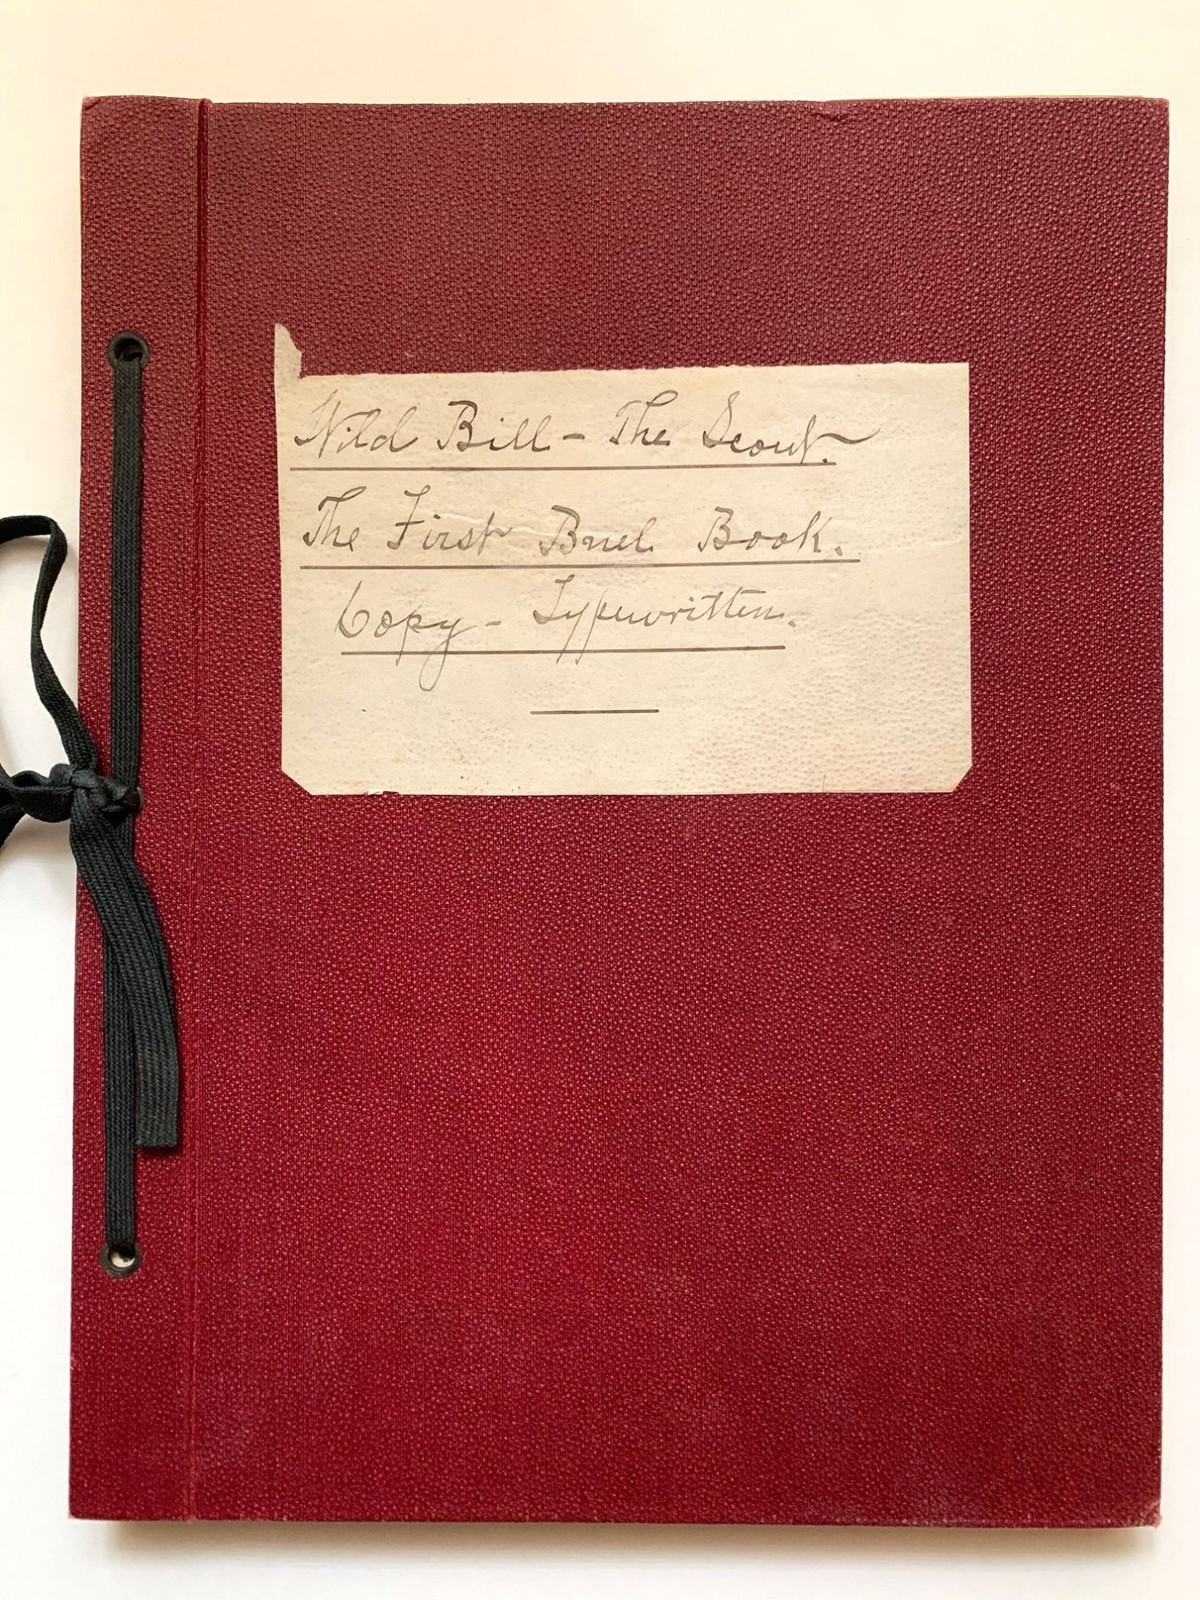 Wild Bill - The Scout.
The First Buel Book.
Copy - Typewritten.